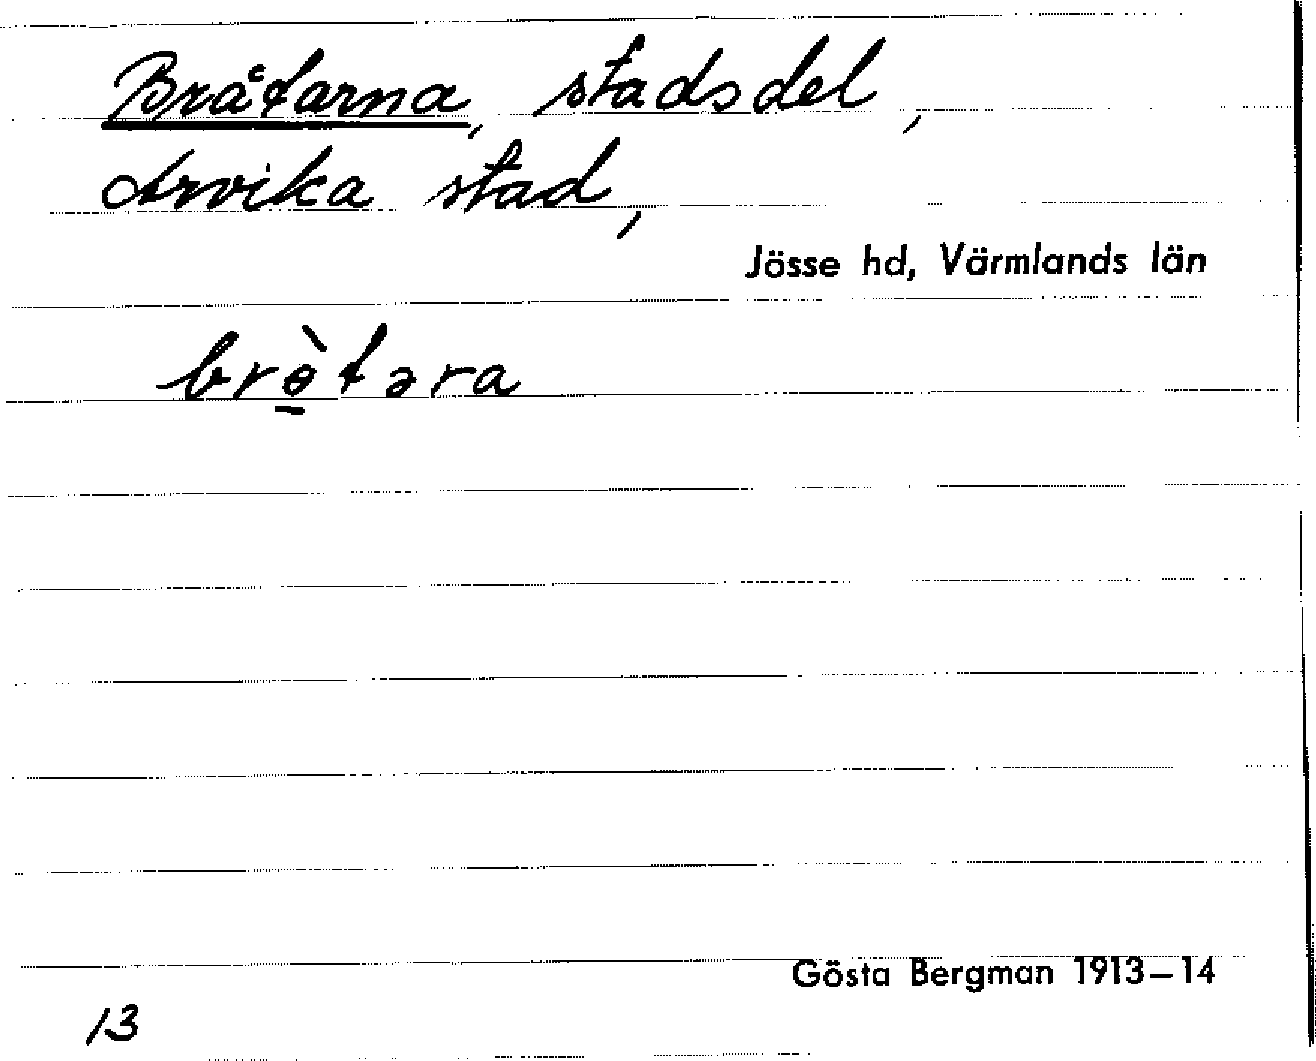 Bråtarna, stadsdel,
Arvika stad,
Jösse hd, Värmlands län
brɵ̱̀təra
Gösta Bergman 1913–14
13